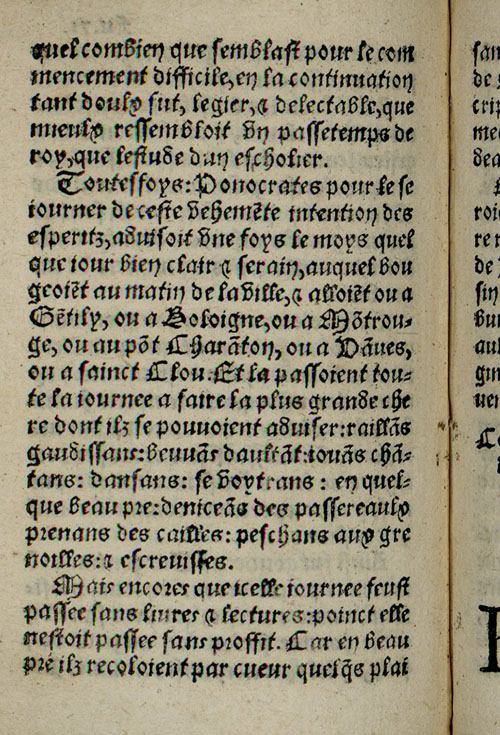 quel combien que semblast pour le com
mencement difficile, en la continuation
tant doulx fut, legier, & delectable, que
mieulx ressembloit vn passetemps de
roy, que lestude dun escholier.
Toutesfoys: Ponocrates pour le se
iourner de ceste vehemēte intention des
espertiz, aduisoit vne foys le moys quel
que iour bien clair & serain, auquel bou
geoiēt au matin de la ville, & alloiēt ou a
Gētily, ou a Boloigne, ou a Mōtrou-
ge, ou au pōt Charāton, ou a Vāues,
ou a sainct Clou. Et la passoient tou-
te la iournee a faire la plus grande che
re dont ilz se pouuoient aduiser: raillās
gaudissans: beuuās daultāt: iouās chā-
tans: dansans: se voytrans: en quel-
que beau pre: deniceās des passereaulx
prenans des cailles: peschans aux gre
noilles: & escreuisses.
Mais encores que icelle iournee feust
passee sans liures & lectures: poinct elle
nestoit passee sans proffit. Car en beau
pré ilz recoloient par cueur quelq̄s plai
san
de
crip
me
dea
roi
re
de
sin
bu
aul
gin
uer